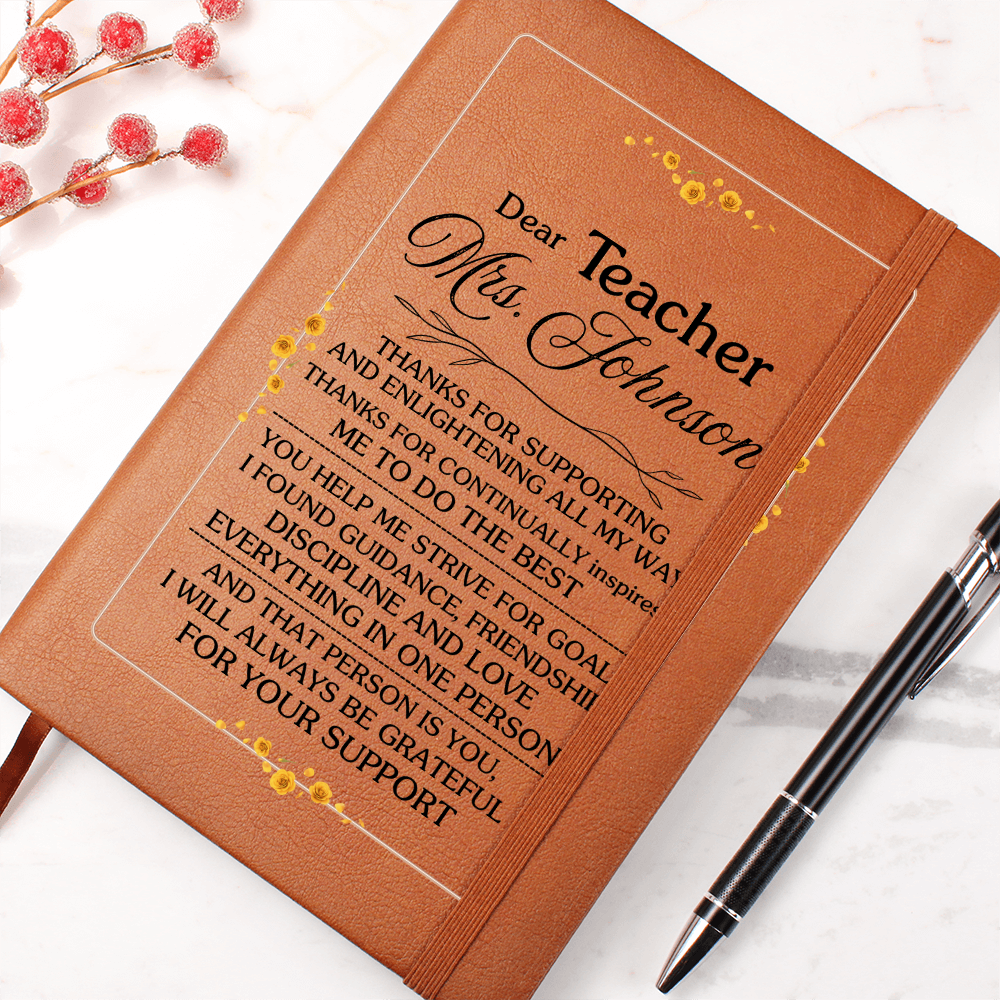 Dear Teacher
Mrs. Johnson
THANKS FOR SUPPORTING
AND ENLIGHTENING ALL MY WAY
THANKS FOR CONTINUALLY inspires
ME TO DO THE BEST
YOU HELP ME STRIVE FOR GOAL
I FOUND GUIDANCE, FRIENDSHI
DISCIPLINE AND LOVE
EVERYTHING IN ONE PERSON
AND THAT PERSON IS YOU,
I WILL ALWAYS BE GRATEFUL
FOR YOUR SUPPORT